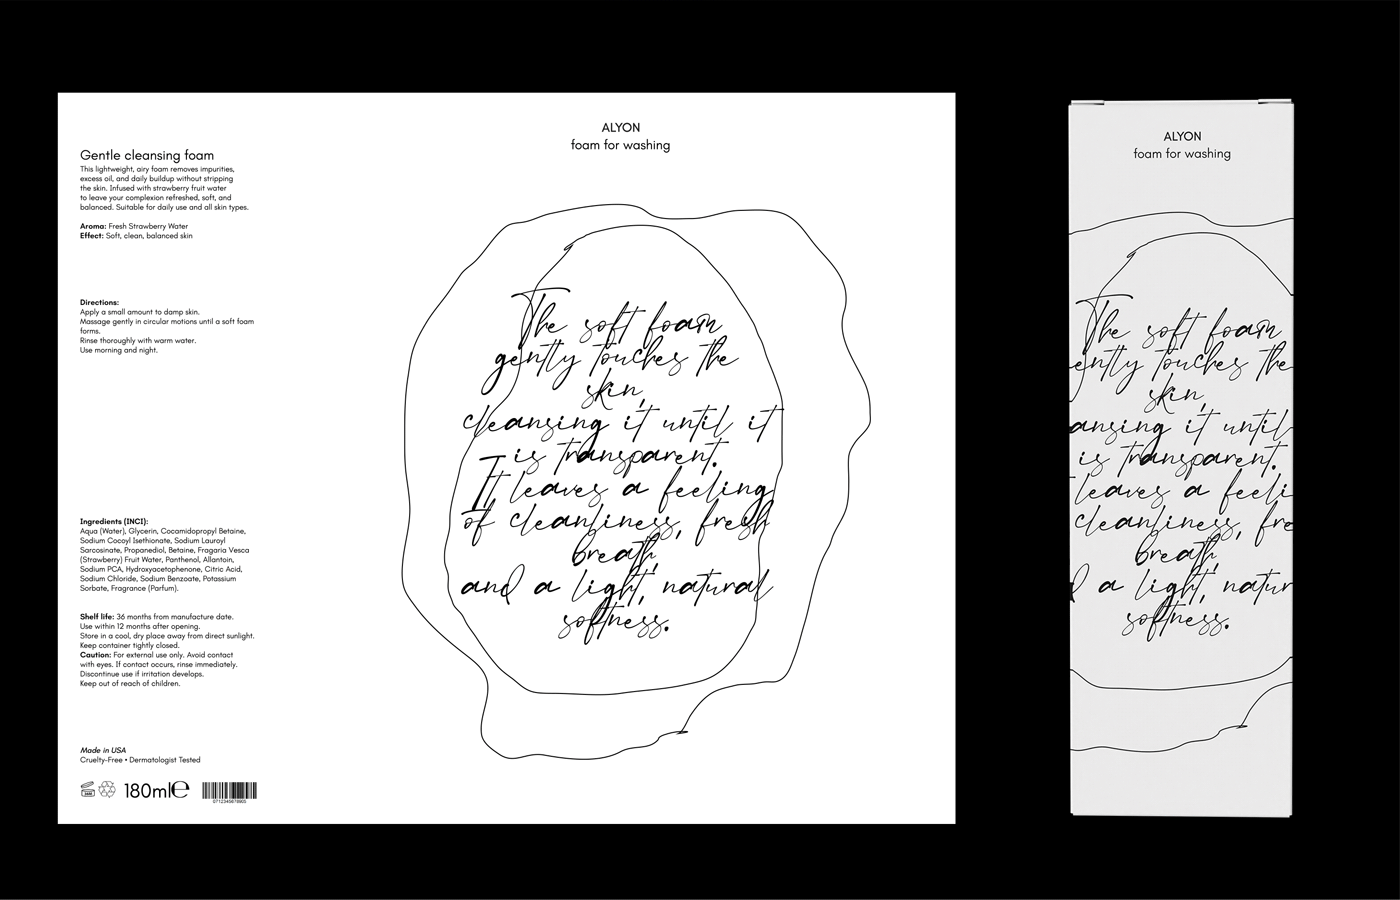 Gentle cleansing foam
This lightweight, airy foam removes impurities,
excess oil, and daily buildup without stripping
the skin. Infused with strawberry fruit water
to leave your complexion refreshed, soft, and
balanced. Suitable for daily use and all skin types.
Aroma: Fresh Strawberry Water
Effect: Soft, clean, balanced skin
Directions:
Apply a small amount to damp skin.
Massage gently in circular motions until a soft foam
forms.
Rinse thoroughly with warm water.
Use morning and night.
Ingredients (INCI):
Aqua (Water), Glycerin, Cocamidopropyl Betaine,
Sodium Cocoyl Isethionate, Sodium Lauroyl
Sarcosinate, Propanediol, Betaine, Fragaria Vesca
(Strawberry) Fruit Water, Panthenol, Allantoin,
Sodium PCA, Hydroxyacetophenone, Citric Acid,
Sodium Chloride, Sodium Benzoate, Potassium
Sorbate, Fragrance (Parfum).
Shelf life: 36 months from manufacture date.
Use within 12 months after opening.
Store in a cool, dry place away from direct sunlight.
Keep container tightly closed.
Caution: For external use only. Avoid contact
with eyes. If contact occurs, rinse immediately.
Discontinue use if irritation develops.
Keep out of reach of children.
Made in USA
Cruelty-Free • Dermatologist Tested
180ml℮
ALYON
foam for washing
The soft foam
gently touches the
skin,
cleansing it until it
is transparent.
It leaves a feeling
of cleanliness, fresh
breath,
and a light, natural
softness.
ALYON
foam for washing
The soft foam
ently touches the
skin,
ansing it until
is transparent.
leaves a feeli
cleanliness, fre
breath,
d a light, natur
softness.